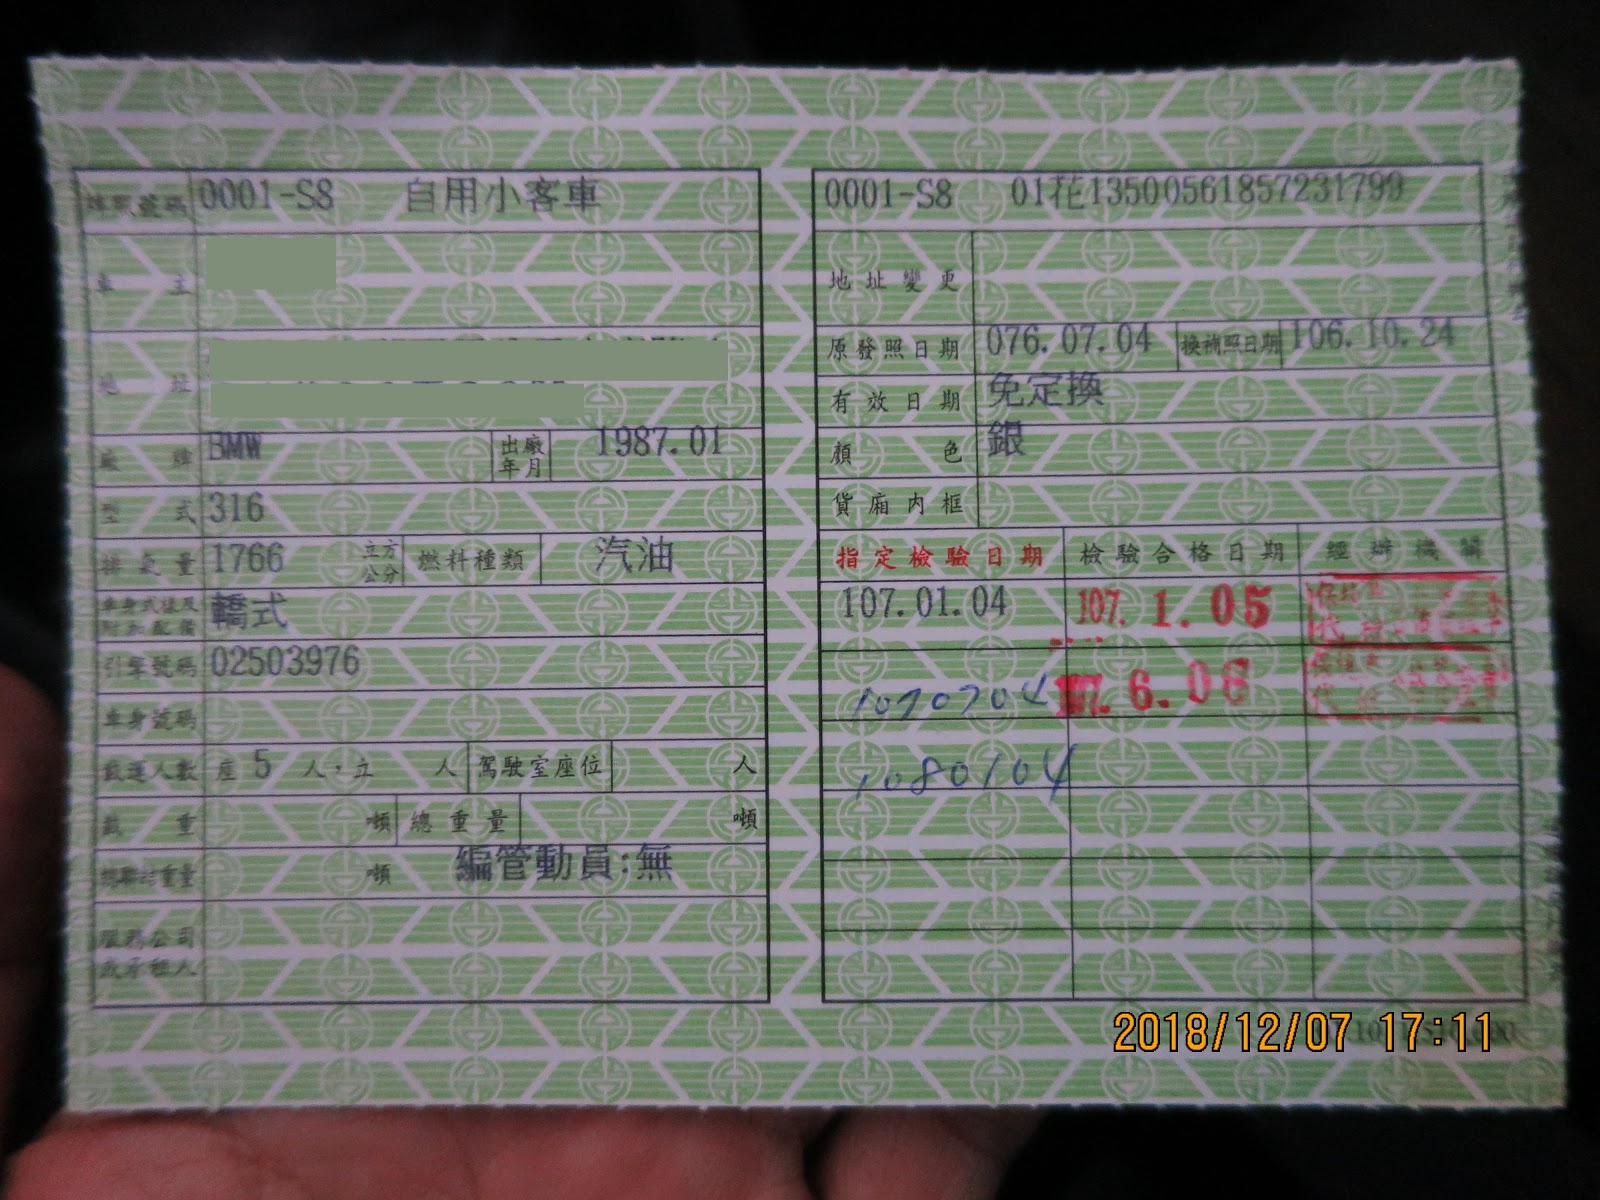 牌照號碼 0001-S8 自用小客車
車主
地址
廠牌 BMW 出廠年月 1987.01
型式 316
排氣量 1766 立方公分 燃料種類 汽油
車身式樣及附加配備 轎式
引擎號碼 02503976
車身號碼
載運人數 座 5 人,立 人 駕駛室座位 人
載重 噸 總重量 噸
總聯結重量 噸 編管動員:無
服務公司或承租人
0001-S8 01花13500561857231799
地址變更
原發照日期 076.07.04 換補照日期 106.10.24
有效日期 免定換
顏色 銀
貨廂內框
指定檢驗日期 檢驗合格日期 經辦機關
107.01.04 107.1.05
1070704 107.6.06
1080104
2018/12/07 17:11